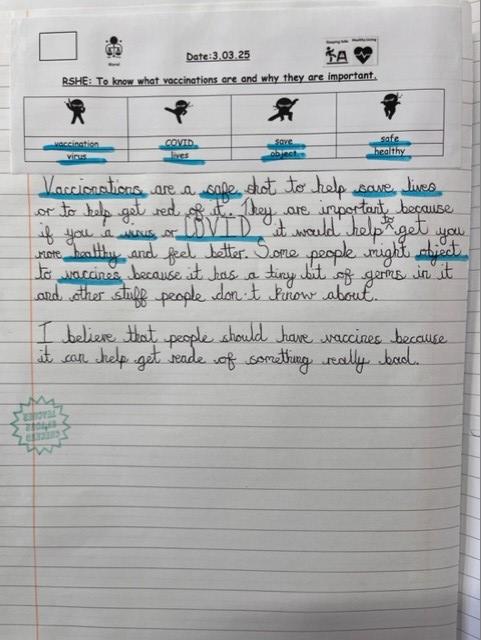 Moral
Keeping Safe Healthy Living
Date:3.03.25
RSHE: To know what vaccinations are and why they are important.
vaccination COVID save safe
virus lives object healthy
Vaccionations are a safe shot to help save lives
or to help get red of it. They are important because
if you a virus or COVID it would help to get you
more healthy and feel better. Some people might object
to vaccines because it has a tiny bit of germs in it
and other stuff people don't know about.
I believe that people should have vaccines because
it can help get reade of something really bad.